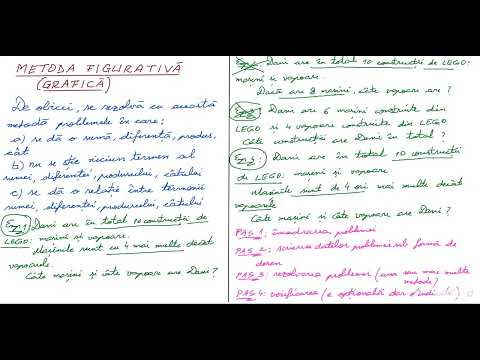 METODA FIGURATIVĂ
(GRAFICĂ)
De obicei, se rezolvă cu această
metodă problemele în care:
a) se dă o sumă, diferență, produs,
cât
b) nu se știe niciun termen al
sumei, diferenței, produsului, câtului
c) se dă o relație între termenii
sumei, diferenței, produsului, câtului
Ex. 1 Dani are în total 10 construcții de
LEGO: mașini și vapoare.
Mașinile sunt cu 4 mai multe decât
vapoarele.
Câte mașini și câte vapoare are Dani?
Dani are în total 10 construcții de LEGO:
mașini și vapoare.
Dacă are 8 mașini, câte vapoare are?
Dani are 6 mașini construite din
LEGO și 4 vapoare construite din LEGO.
Câte construcții are Dani în total?
Ex. 2: Dani are în total 10 construcții
de LEGO: mașini și vapoare.
Mașinile sunt de 4 ori mai multe decât
vapoarele.
Câte mașini și câte vapoare are Dani?
PAS 1: încadrarea problemei
PAS 2: scrierea datelor problemei sub formă de
desen
PAS 3: rezolvarea problemei (una sau mai multe
metode)
PAS 4: verificarea (e opțională dar